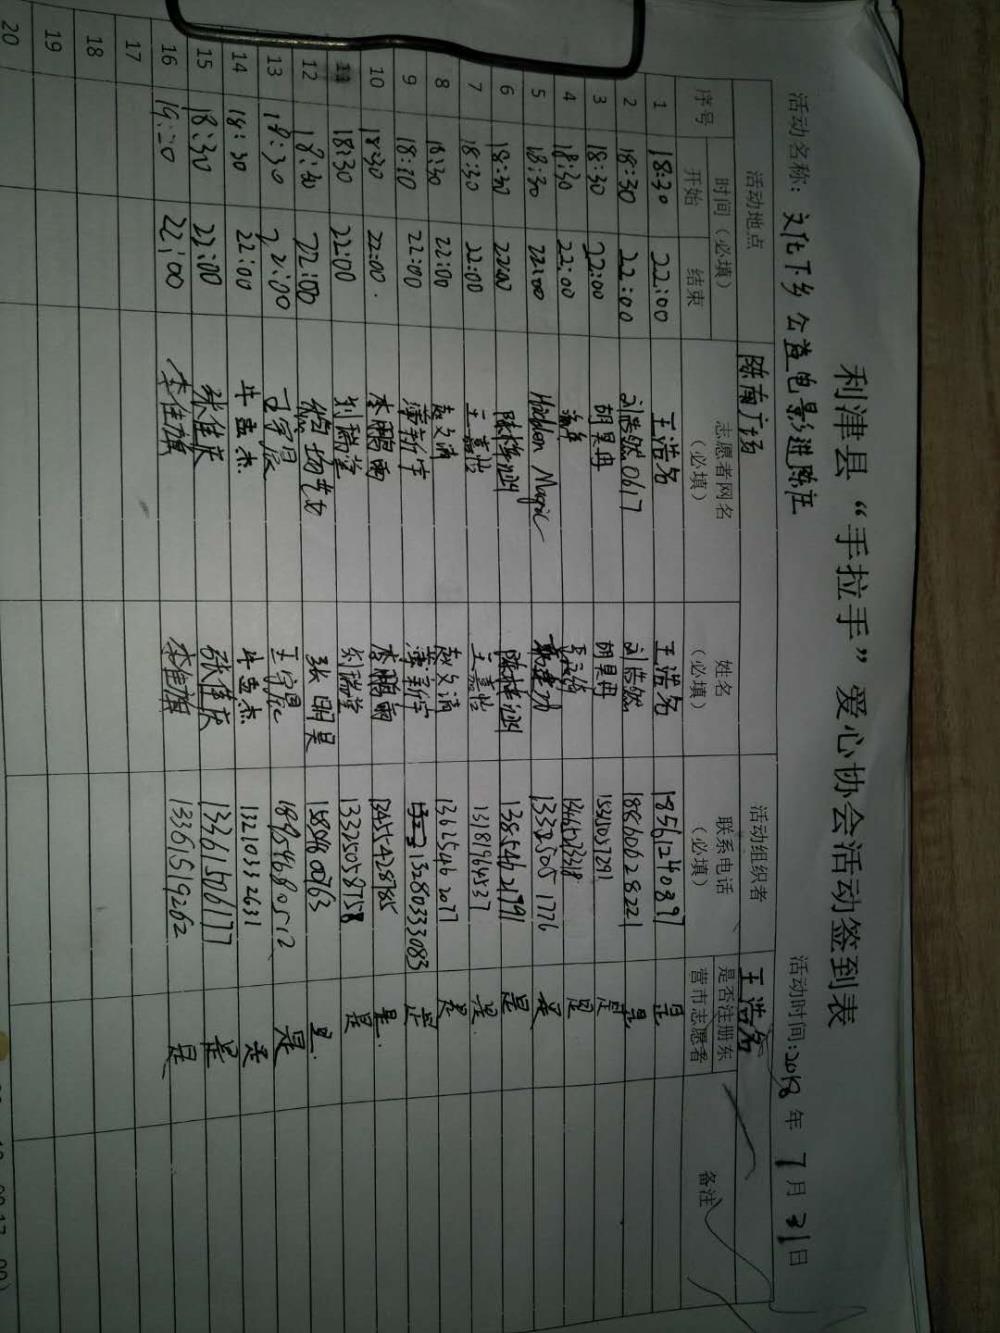 利津县“手拉手”爱心协会活动签到表
活动名称：文化下乡公益电影进陈庄 活动时间：2018年7月31日
活动地点 陈南广场 活动组织者 王浩名
序号 时间（必填） 志愿者网名（必填） 姓名（必填） 联系电话（必填） 是否注册东营市志愿者 备注
开始 结束
1 18:30 22:00 王浩名 王浩名 18561240897 是
2 18:30 22:00 刘浩然0617 刘浩然 18860628221 是
3 18:30 22:00 胡昊冉 胡昊冉 是
4 18:30 22:00 是
5 18:30 22:00 Hidden Magic 13325051776 是
6 18:30 22:00 13854621791 是
7 18:30 22:00 王嘉怡 王嘉怡 13181964537 是
8 18:30 22:00 赵文清 赵文清 13625462077 是
9 18:30 22:00 潘新宇 潘新宇 13280333083 是
10 18:30 22:00. 李鹏雨 李鹏雨 13455428785 是.
11 18:30 22:00 刘瑞莹 刘瑞莹 13325058758 是
12 18:30 22:00 张明昊 是.
13 18:30 22:00 王守晟 王守晟 18954680512 是
14 18:30 22:00 牛孟杰 牛孟杰 13210332631 是
15 18:30 22:00 张佳庆 张佳庆 13361506177 是
16 22:00 李佳旗 李佳旗 13361519262 是
17
18
19
20